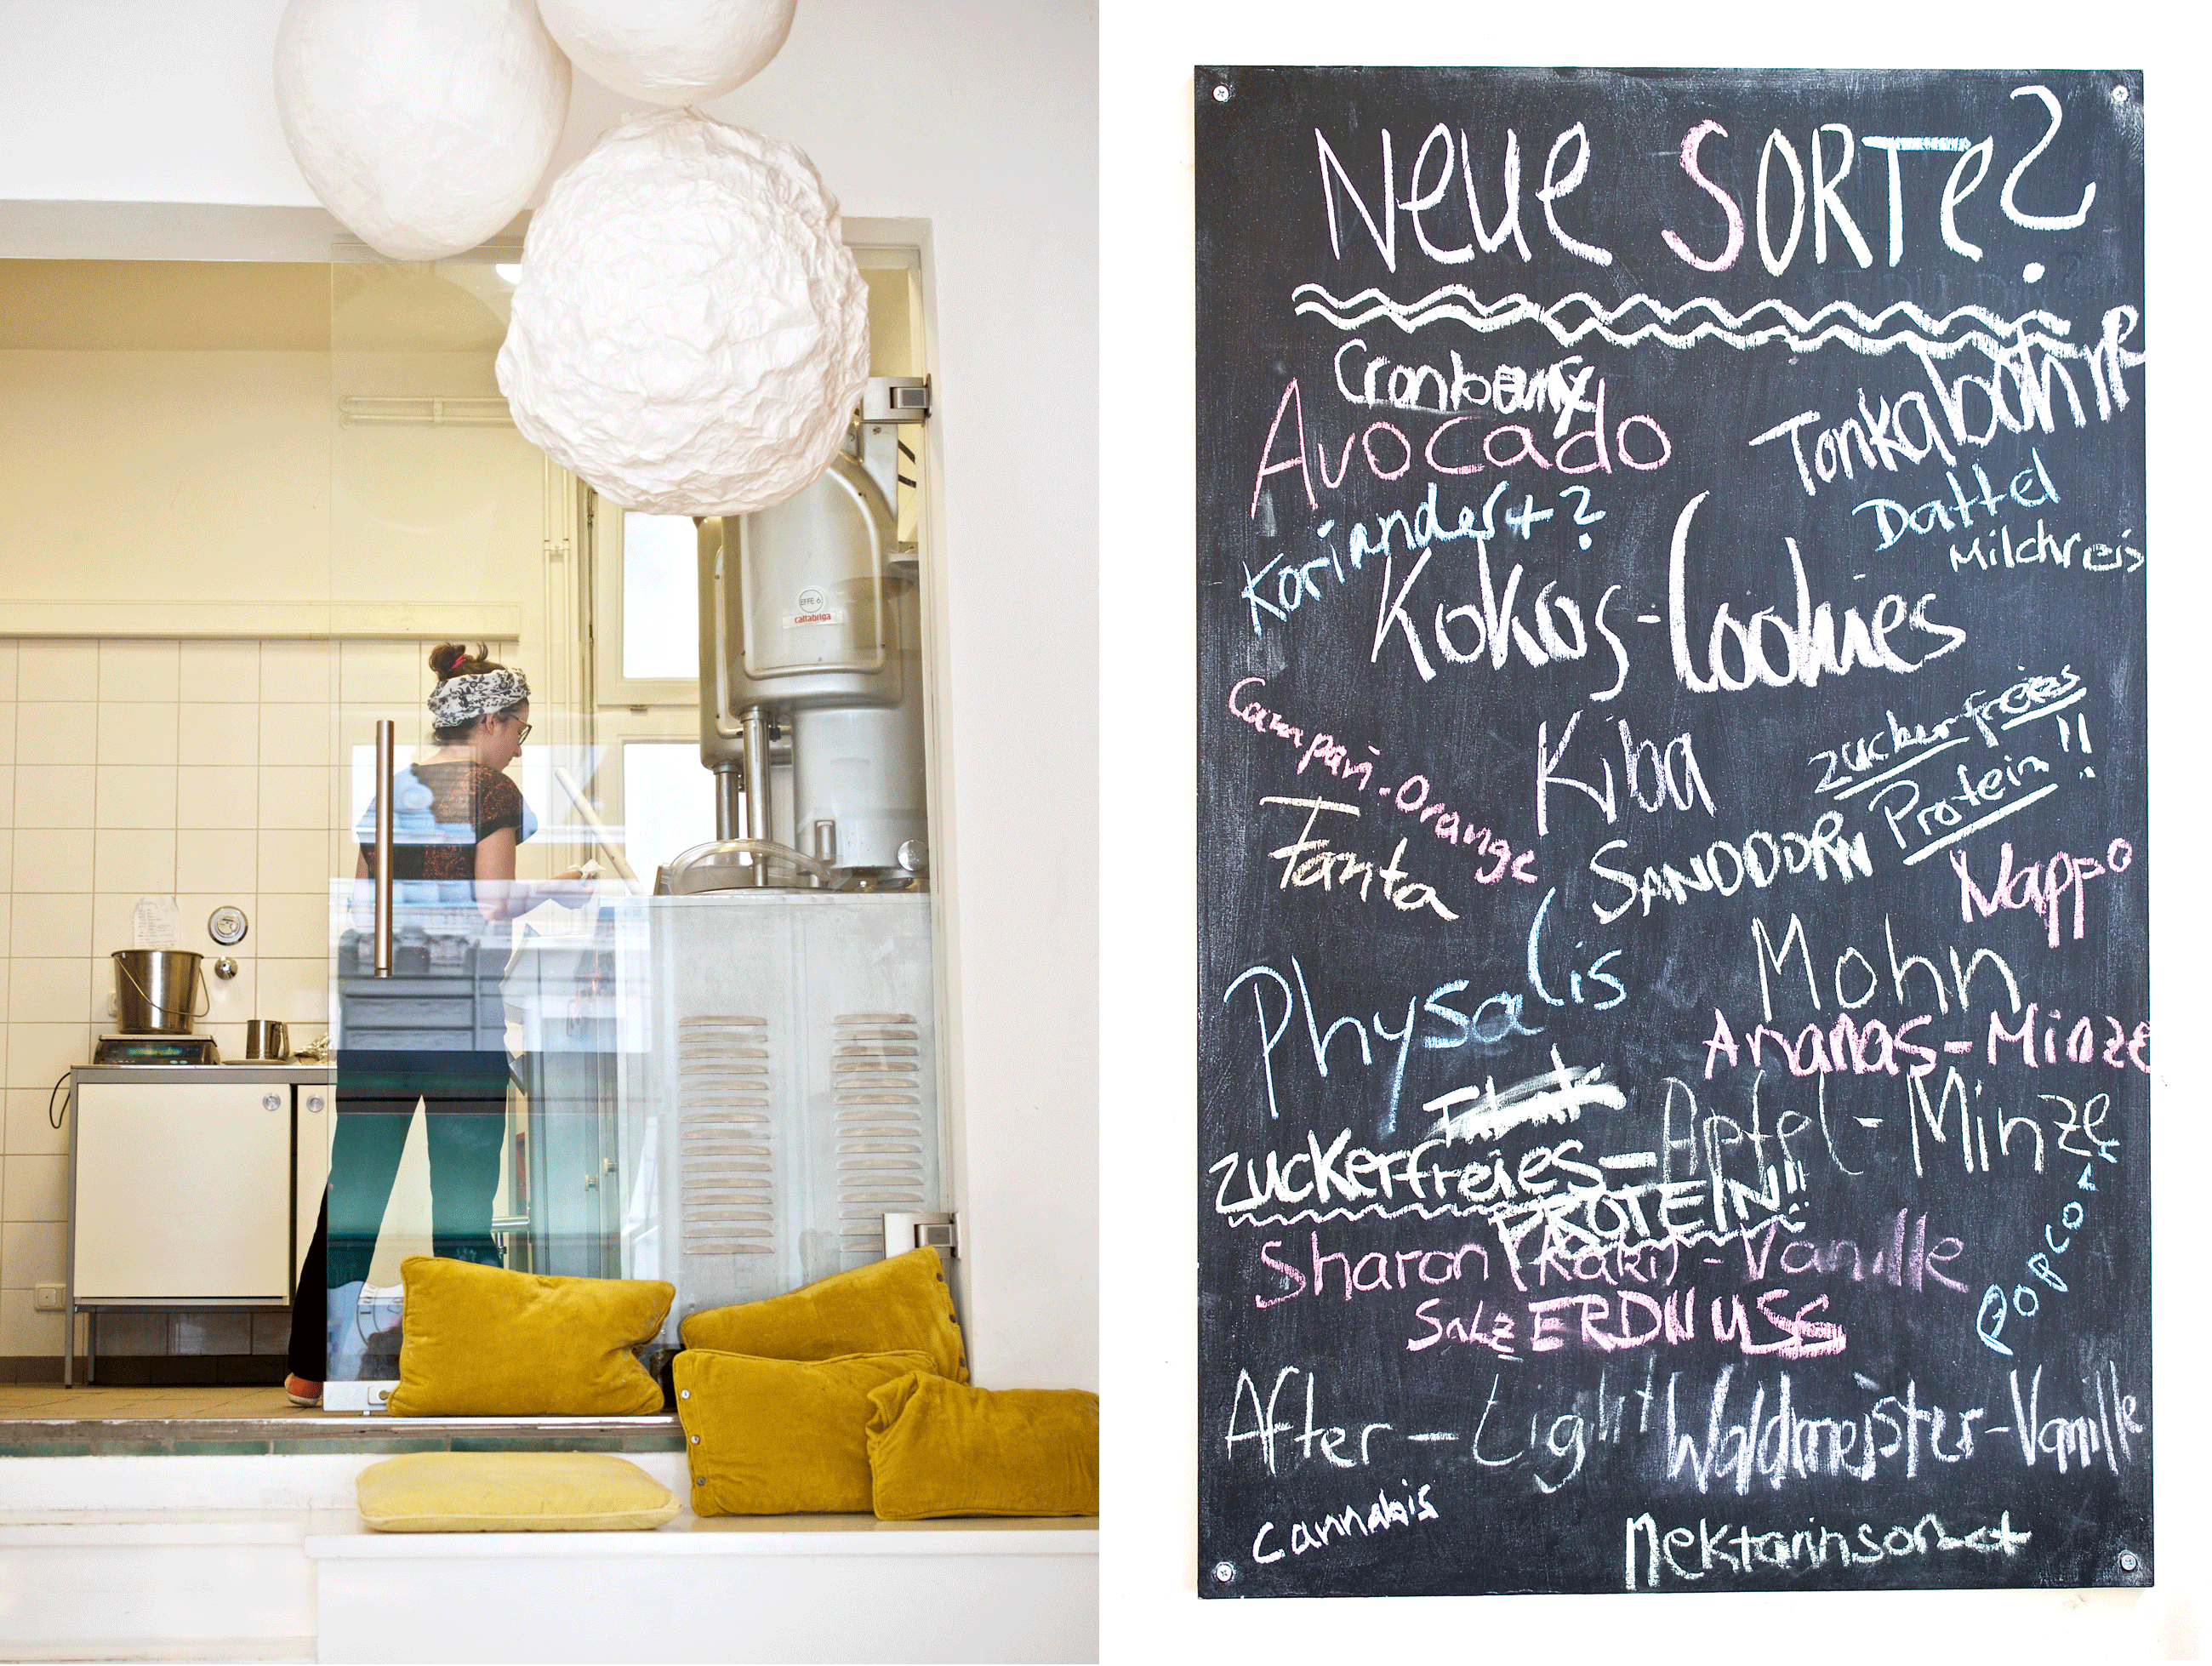 EFFE 6
cattabriga
Neue SORTe?
Cranberry
Avocado
Tonkabohne
Koriander+?
Dattel
Milchreis
Kokos-Cookies
Campari-Orange
Kiba
zuckerfreies
Protein!!
Fanta
SANDDORN
Nappo
Physalis
Mohn
Ananas-Minze
Apfel-Minze
zuckerfreies-
PROTEIN!!
Sharon (Kaki)-Vanille
POPCO
SALZ ERDNUSS
After-Light
Waldmeister-Vanille
Cannabis
Nektarinsorbet